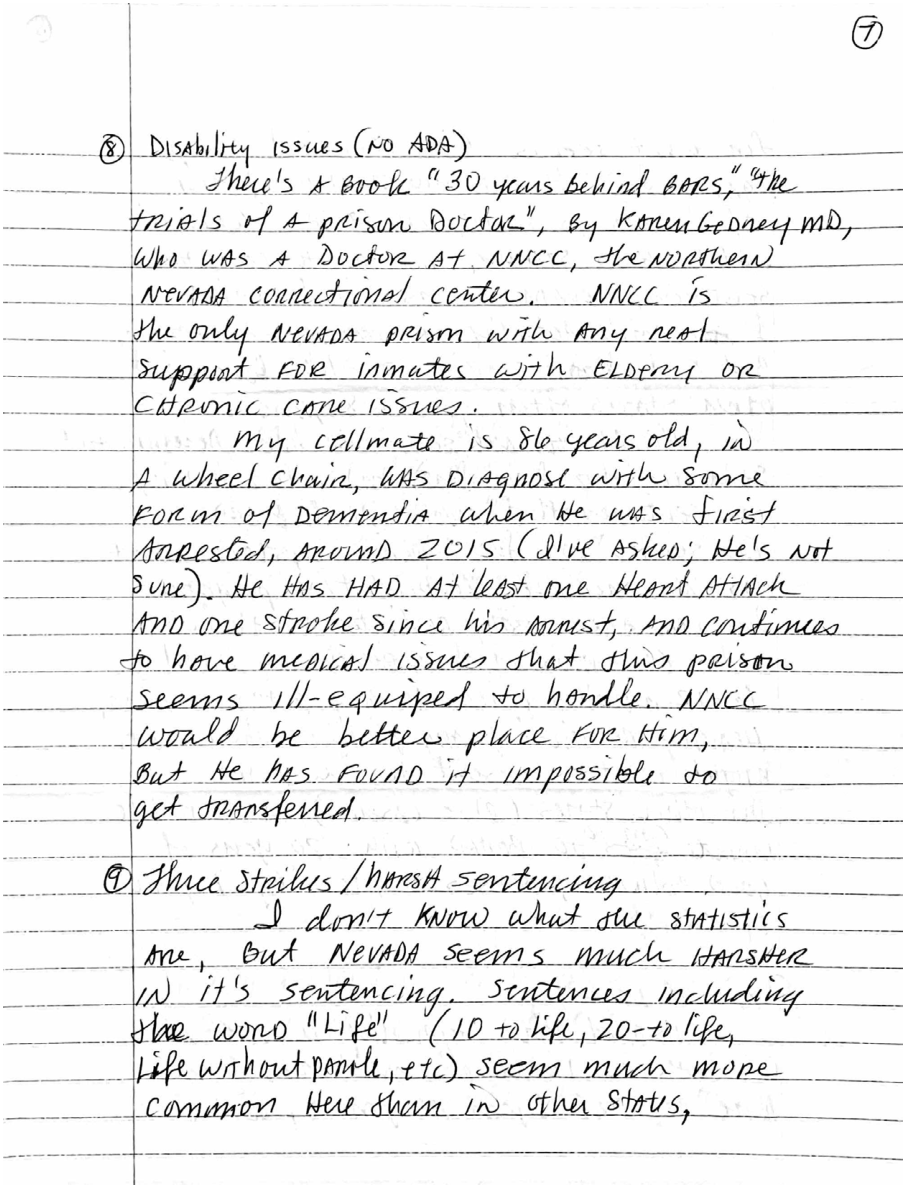 7
8 Disability issues (NO ADA)
There's a Book "30 years behind BARS," "the
trials of A prison Doctor", By Karen Gedney MD,
Who was A Doctor At NNCC, the Northern
Nevada correctional center. NNCC is
the only Nevada prison with Any real
support for inmates with Elderly or
chronic care issues.
My cellmate is 86 years old, in
A wheel chair, was Diagnose with some
form of Dementia when He was first
Arrested, Around 2015 (I've Asked; He's Not
sure). He Has HAD At least one Heart Attack
And one stroke since his Arrest, And continues
to have medical issues that this prison
seems ill-equiped to handle. NNCC
would be better place for Him,
But He has found it impossible to
get transferred.
9 Three Strikes / harsh sentencing
I don't know what the statistics
Are, But Nevada seems much Harsher
in it's sentencing. Sentences including
the word "Life" (10 to life, 20-to life,
Life without parole, etc) seem much more
common Here than in other States,